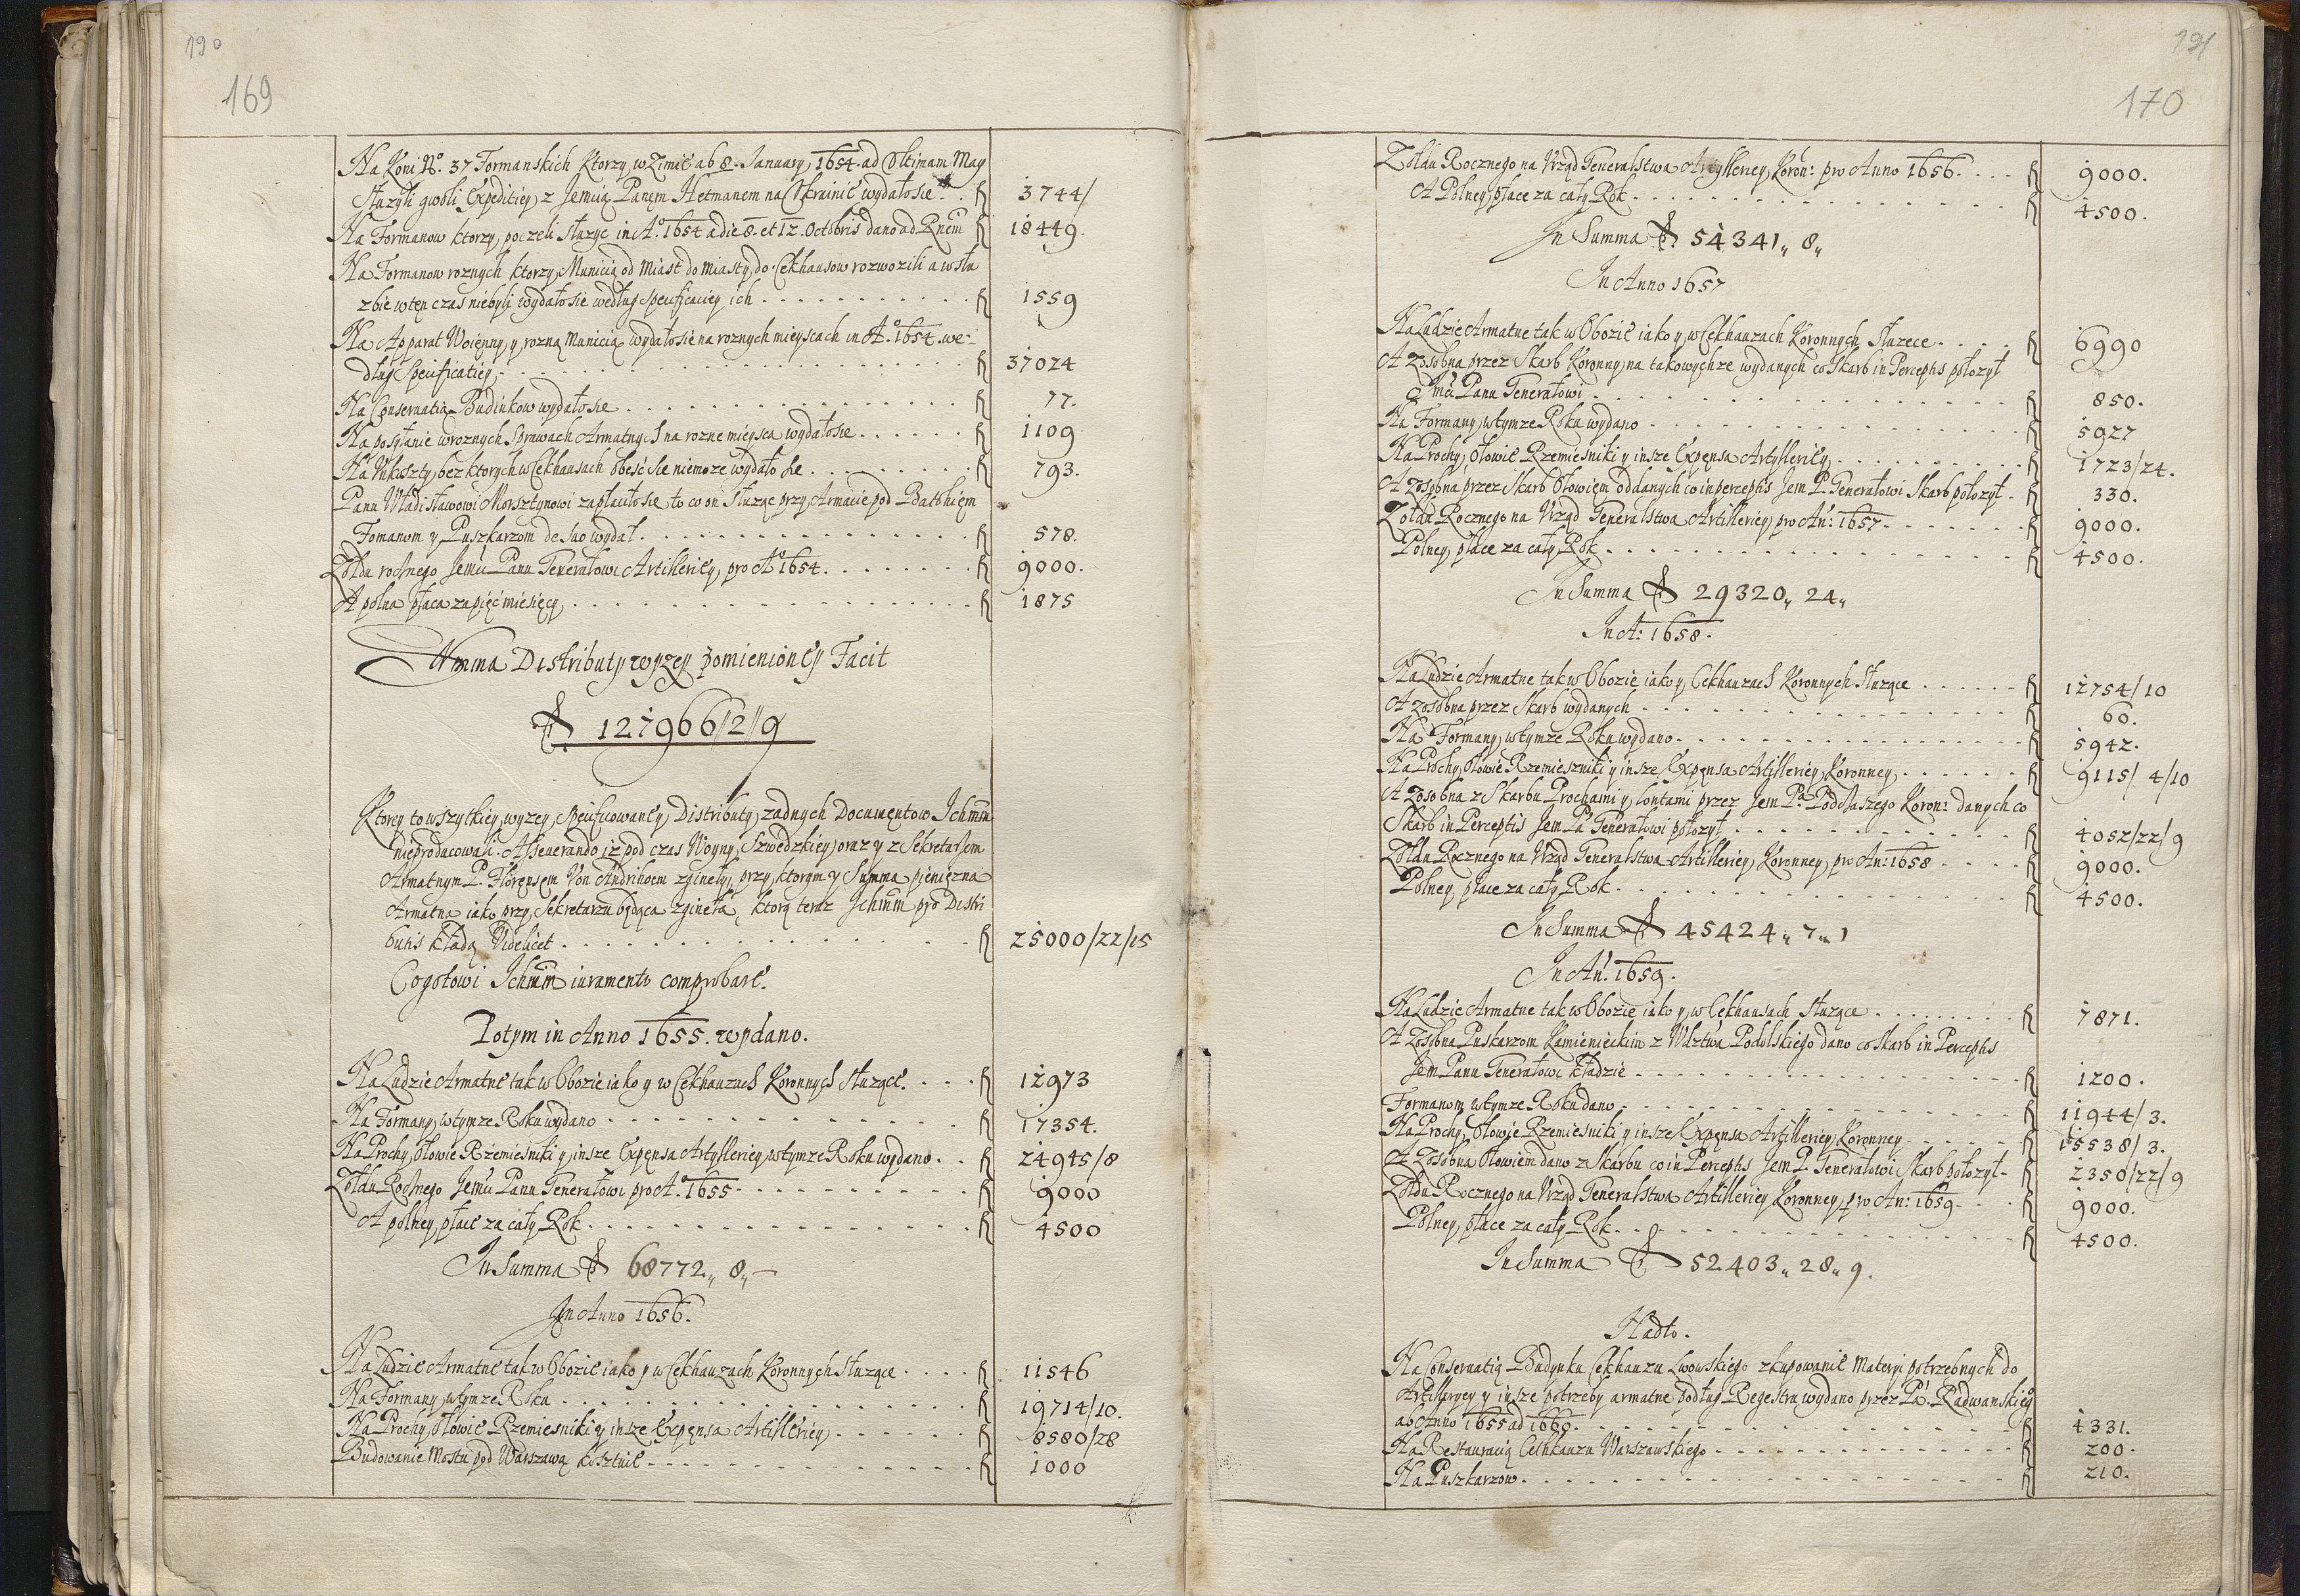 190
169
Na Koni No. 37 Formanskich Ktorzy w Zimie ab 8. January, 1654. ad Ultimam May
służyli gwoli Expeditiey z Jemcią Panem Hetmanem na Ukrainie wydało sie . . fl 3744/
Na Formanow ktorzy poczeli służyc in Ao. 1654 a die 8. et 12. Octobris dano ad Rnem fl 18449.
Na Formanow roznych ktorzy Municią od Miast do Miasty do Cekhausow rozwozili a w słu
zbie w ten czas niebyli wydało sie według specificaciey ich . . . fl 1559
Na Apparat Woięnny, y rozną Municią wydało sie na roznych mieyscach in Ao. 1654. we-
dług Specificatiey . . . fl 37024
Na Conseruatią Budinkow wydało sie . . . fl 77.
Na posyłanie w roznych Sprawach Armatnych na rozne mieysca wydało sie . . . fl 1109
Na Unkoszty, bez ktorych w Cekhausach obesć sie niemoze wydało sie . . . fl 793.
Panu Władisławowi Morsztynowi zapłaciło sie to co on Służąc przy Armacie pod Batohiem
Fomanom y Puszkarzom de suo wydał . . . fl 578.
Zołdu rocznego Jemci Panu Generałowi Artilleriey, pro Ao 1654 . . . fl 9000.
A polna płaca za pięć miesięcy . . . fl 1875
Summa Distributy wyzey pomienioney Facit
fl. 127966//2//9
Ktorey to wszytkiey wyzey specificowaney Distributy zadnych Documentow Ichmm
nieproducowali. Asseuerando iz pod czas Woyny Szwedzkiey oraz y z Sekretarzem
Armatnym P. Florensem Von Andrihoem zgineły, przy ktorym y Summa pieniezna
Armatna iako przy Sekretarzu będąca zgineła, ktorą teraz Ichmm pro Distri
butis kładą Videlicet . . . fl 25000/22/15
Co gotowi Ichmm iuramento comprobare.
Potym in Anno 1655. wydano.
Na Ludzie Armatne tak w Obozie iako y w Cekhauzach Koronnych służące . . . fl 12973
Na Formany, w tymze Roku wydano . . . fl 17354.
Na Prochy, Ołowie Rzemiesniki y insze Expensa Artylleriey w tymze Roku wydano . . fl 24945/8
Zołdu Rocznego Jemci Panu Generałowi pro Ao. 1655 . . . fl 9000
A polney, płace za cały Rok . . . fl 4500
In Summa fl 68772,, 8,, —
In Anno 1656.
Na Ludzie Armatne tak w Obozie iako y w Cekhauzach Koronnych Służące . . . fl 11546
Na Formany, w tymze Roku . . . fl 19714/10.
Na Prochy, Ołowie Rzemiesniki y insze Expensa Artilleriey . . . fl 8580/28
Budowanie Mostu pod Warszawą kosztuie . . . fl 1000
191
170
Zołdu Rocznego na Urząd Generalstwa Artylleriey Koron: pro Anno 1656 . . . fl 9000.
A Polney, płace za cały Rok . . . fl 4500.
In Summa fl. 54341,, 8,,
In Anno 1657
Na Ludzie Armatne tak w Obozie iako y w Cekhauzach Koronnych Służece . . . fl 6990
A zosobna przez Skarb Koronny na takowychze wydanych co Skarb in Perceptis położył
Jmci Panu Generałowi . . . fl 850.
Na Formany, w tymze Roku wydano . . . fl 5927
Na Prochy, Ołowie Rzemiesniki y insze Expensa Artylleriey . . . fl 1723/24.
A zosobna przez Skarb Ołowiem oddanych co in perceptis Jem P. Generałowi Skarb położył . fl 330.
Zołdu Rocznego na Urząd Generalstwa Artilleriey pro An: 1657 . . . fl 9000.
Polney, płace za cały Rok . . . fl 4500.
In Summa fl 29320,, 24,,
In A: 1658.
Na Ludzie Armatne tak w Obozie iako y Cekhauzach Koronnych Służące . . . fl 12754/10
A zosobna przez Skarb wydanych . . . fl 60.
Na Formany, w tymze Roku wydano . . . fl 5942.
Na Prochy, Ołowie Rzemieszniki y insze Expensa Artilleriey Koronney . . . fl 9115/4/10
A zosobna z Skarbu Prochami y Lontami przez Jem Pa Podskaszego Koron: danych co
Skarb in Perceptis Jem Pa Generałowi położył . . . fl 4052/22/9
Zołdu Rocznego na Urząd Generalstwa Artilleriey Koronney, pro An: 1658 . . . fl 9000.
Polney, płace za cały Rok . . . fl 4500.
In Summa fl 45424,, 7,, 1
In An: 1659.
Na Ludzie Armatne tak w Obozie iako y w Cekhausach służące . . . fl 7871.
A zosobna Puskarzom Kamienieckim z Wdztwa Podolskiego dano co Skarb in Perceptis
Jem Panu Generałowi kładzie . . . fl 1200.
Formanom w tymze Roku dano . . . fl 11944/3.
Na Prochy, Ołowie Rzemiesniki y insze Expensa Artilleriey Koronney . . . fl 15538/3.
A zosobna Ołowiem dano z Skarbu co in Perceptis Jem P. Generałowi Skarb położył - fl 2350/22/9
Zołdu Rocznego na Urząd Generalstwa Artilleriey Koronney, pro An: 1659 . . . fl 9000.
Polney, płace za cały Rok . . . fl 4500.
In Summa fl 52403,, 28,, 9.
Nadto.
Na Conseruatią Budynku Cekhauzu Lwowskiego zkupowanie Materyi potrzebnych do
Artilleryey y insze potrzeby armatne podług Regestru wydano przez Pa. Radwanskieg
ab Anno 1655 ad 1660 . . . fl 4331.
Na Restauracią Ceihkauzu Warszawskiego . . . fl 200.
Na Puszkarzow . . . fl 210.